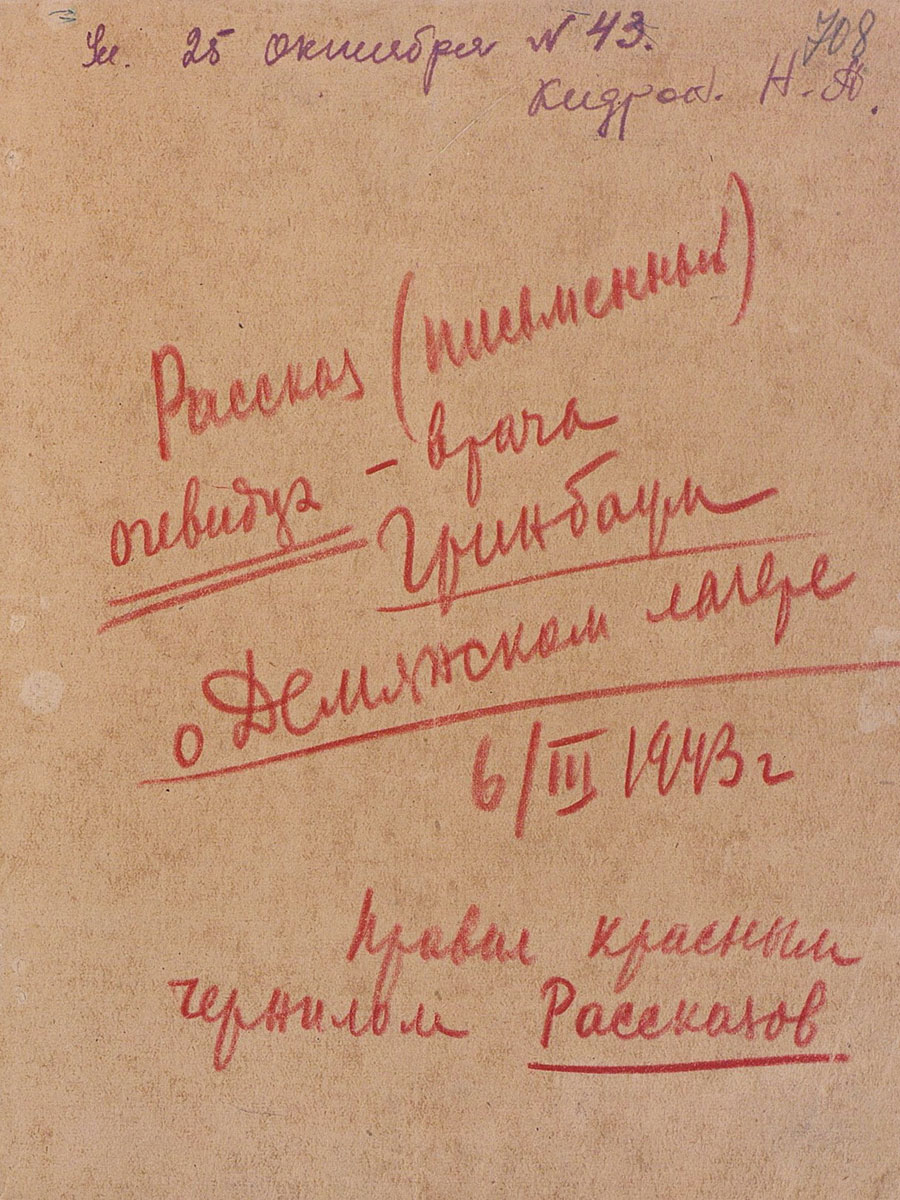 708
Ул. 25 октября № 43.
Кидров. Н. А.
Рассказ (письменный)
очевидца - врача
Гринбаум
о Демянском лагере
6/III 1943 г
правил красным
чернилом Рассказов